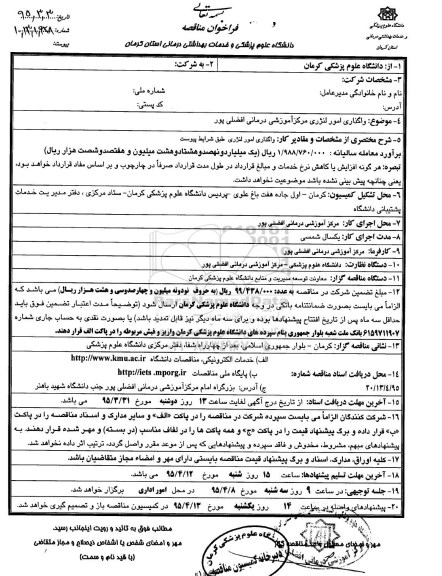 بسمه تعالی
فراخوان مناقصه
دانشگاه علوم پزشکی و خدمات بهداشتی درمانی استان کرمان
تاریخ:
پیوست:
۱- از: دانشگاه علوم پزشکی کرمان
۲- به شرکت:
۳- مشخصات شرکت:
نام و نام خانوادگی مدیرعامل:
شماره ملی:
آدرس:
کد پستی:
۴- موضوع: واگذاری امور لنژری مرکزآموزشی درمانی افضلی پور
۵- شرح مختصری از مشخصات و مقادیر کار: واگذاری امور لنژری طبق شرایط پیوست
برآورد معامله سالیانه: ۱/۹۸۸/۷۶۰/۰۰۰ ریال (یک میلیاردونهصدوهشتادوهشت میلیون و هفتصدوشصت هزار ریال)
تبصره: هر گونه افزایش یا کاهش نرخ خدمات و مبالغ قرارداد در طول مدت قرارداد صرفاً در چارچوب و بر اساس مفاد قرارداد خواهد بود،
یعنی چنانچه پیش بینی نشده باشد موضوعیت نخواهد داشت.
۶- محل تشکیل کمیسیون: کرمان – اول جاده هفت باغ علوی -پردیس دانشگاه علوم پزشکی کرمان- ستاد مرکزی، دفتر مدیریت خدمات
پشتیبانی دانشگاه
۷- محل اجرای کار: مرکز آموزشی درمانی افضلی پور
۸- مدت اجرای کار: یکسال شمسی
۹- کارفرما: مرکز آموزشی درمانی افضلی پور
۱۰- دستگاه نظارت: دانشگاه علوم پزشکی – مرکز آموزشی درمانی افضلی پور
۱۱- دستگاه مناقصه گزار: معاونت توسعه مدیریت و منابع دانشگاه علوم پزشکی کرمان
۱۲- مبلغ تضمین شرکت در مناقصه به عدد: ۹۹/۴۳۸/۰۰۰ ریال (به حروف نودونه میلیون و چهارصدوسی و هشت هزار ریال) می باشد که
الزاماً می بایست بصورت ضمانتنامه بانکی در وجه دانشگاه علوم پزشکی کرمان ارسال شود (توضیحاً مدت اعتبار تضمین فوق باید
حداقل سه ماه پس از تاریخ افتتاح پیشنهادها بوده و برای سه ماه دیگر نیز قابل تمدید باشد) یا بصورت نقدی به حساب جاری شماره
بانک ملت شعبه بلوار جمهوری بنام سپرده های دانشگاه علوم پزشکی کرمان واریز و فیش مربوطه را در پاکت الف قرار دهند.
۱۳- نشانی مناقصه گزار: کرمان – بلوار جمهوری اسلامی بعد از چهارراه شفا، دفتر مرکزی دانشگاه علوم پزشکی
۱۴- محل دریافت اسناد مناقصه شماره:
الف) خدمات الکترونیکی، مناقصات دانشگاه http://www.kmu.ac.ir
ب) پایگاه ملی مناقصات http://iets .mporg.ir
۲۰/۱۳/۴/۹۵
ج) آدرس: بزرگراه امام مرکزآموزشی درمانی افضلی پور جنب دانشگاه شهید باهنر
۱۵- آخرین مهلت دریافت اسناد: از تاریخ درج آگهی لغایت ساعت ۱۳ روز دوشنبه ۹۵/۳/۳۱ می باشد.
۱۶- شرکت کنندگان الزاماً می بایست سپرده شرکت در مناقصه را در پاکت «الف» و سایر مدارک و اسناد مناقصه را در پاکت
«ب» قرار داده و برگ پیشنهاد قیمت را در پاکت «ج» و همه پاکت ها را در لفاف مناسب (در بسته) و مهر شده قرار دهند. به
پیشنهادهای مبهم، مشروط، مخدوش و فاقد سپرده و پیشنهادهایی که پس از موعد مقرر واصل گردد، ترتیب اثر داده نخواهد شد.
۱۷- کلیه اوراق، مدارک، اسناد و برگ پیشنهاد قیمت مناقصه بایستی دارای مهر و امضاء مجاز متقاضیان باشد.
۱۸- آخرین مهلت تسلیم پیشنهادها: ساعت ۱۵ روز شنبه ۹۵/۴/۱۲ می باشد.
۱۹- جلسه توجیهی: در ساعت ۹ روز سه شنبه ۹۵/۴/۸ در محل امور اداری برگزار خواهد شد.
۲۰- پیشنهادهای واصله در ساعت ۱۴ روز یکشنبه ۹۵/۴/۱۳ در کمیسیون مناقصه باز و تصمیم گیری خواهد شد.
مطالب فوق به تائید و رویت اینجانب رسید.
مهر و امضای شخص یا اشخاص ذیصلاح و مجاز متقاضی
(با قید نام و سمت)